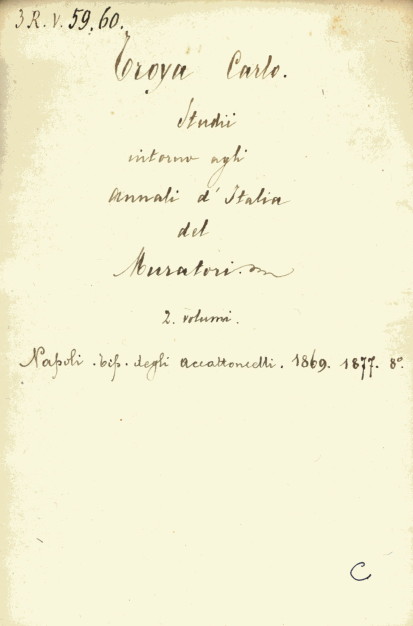 3.R.V.59,60.
Troya Carlo.
Studii
intorno agli
annali d'Italia
del
Muratori.
2. volumi.
Napoli. tip. degli accattoncelli. 1869. 1877. 8°.
C